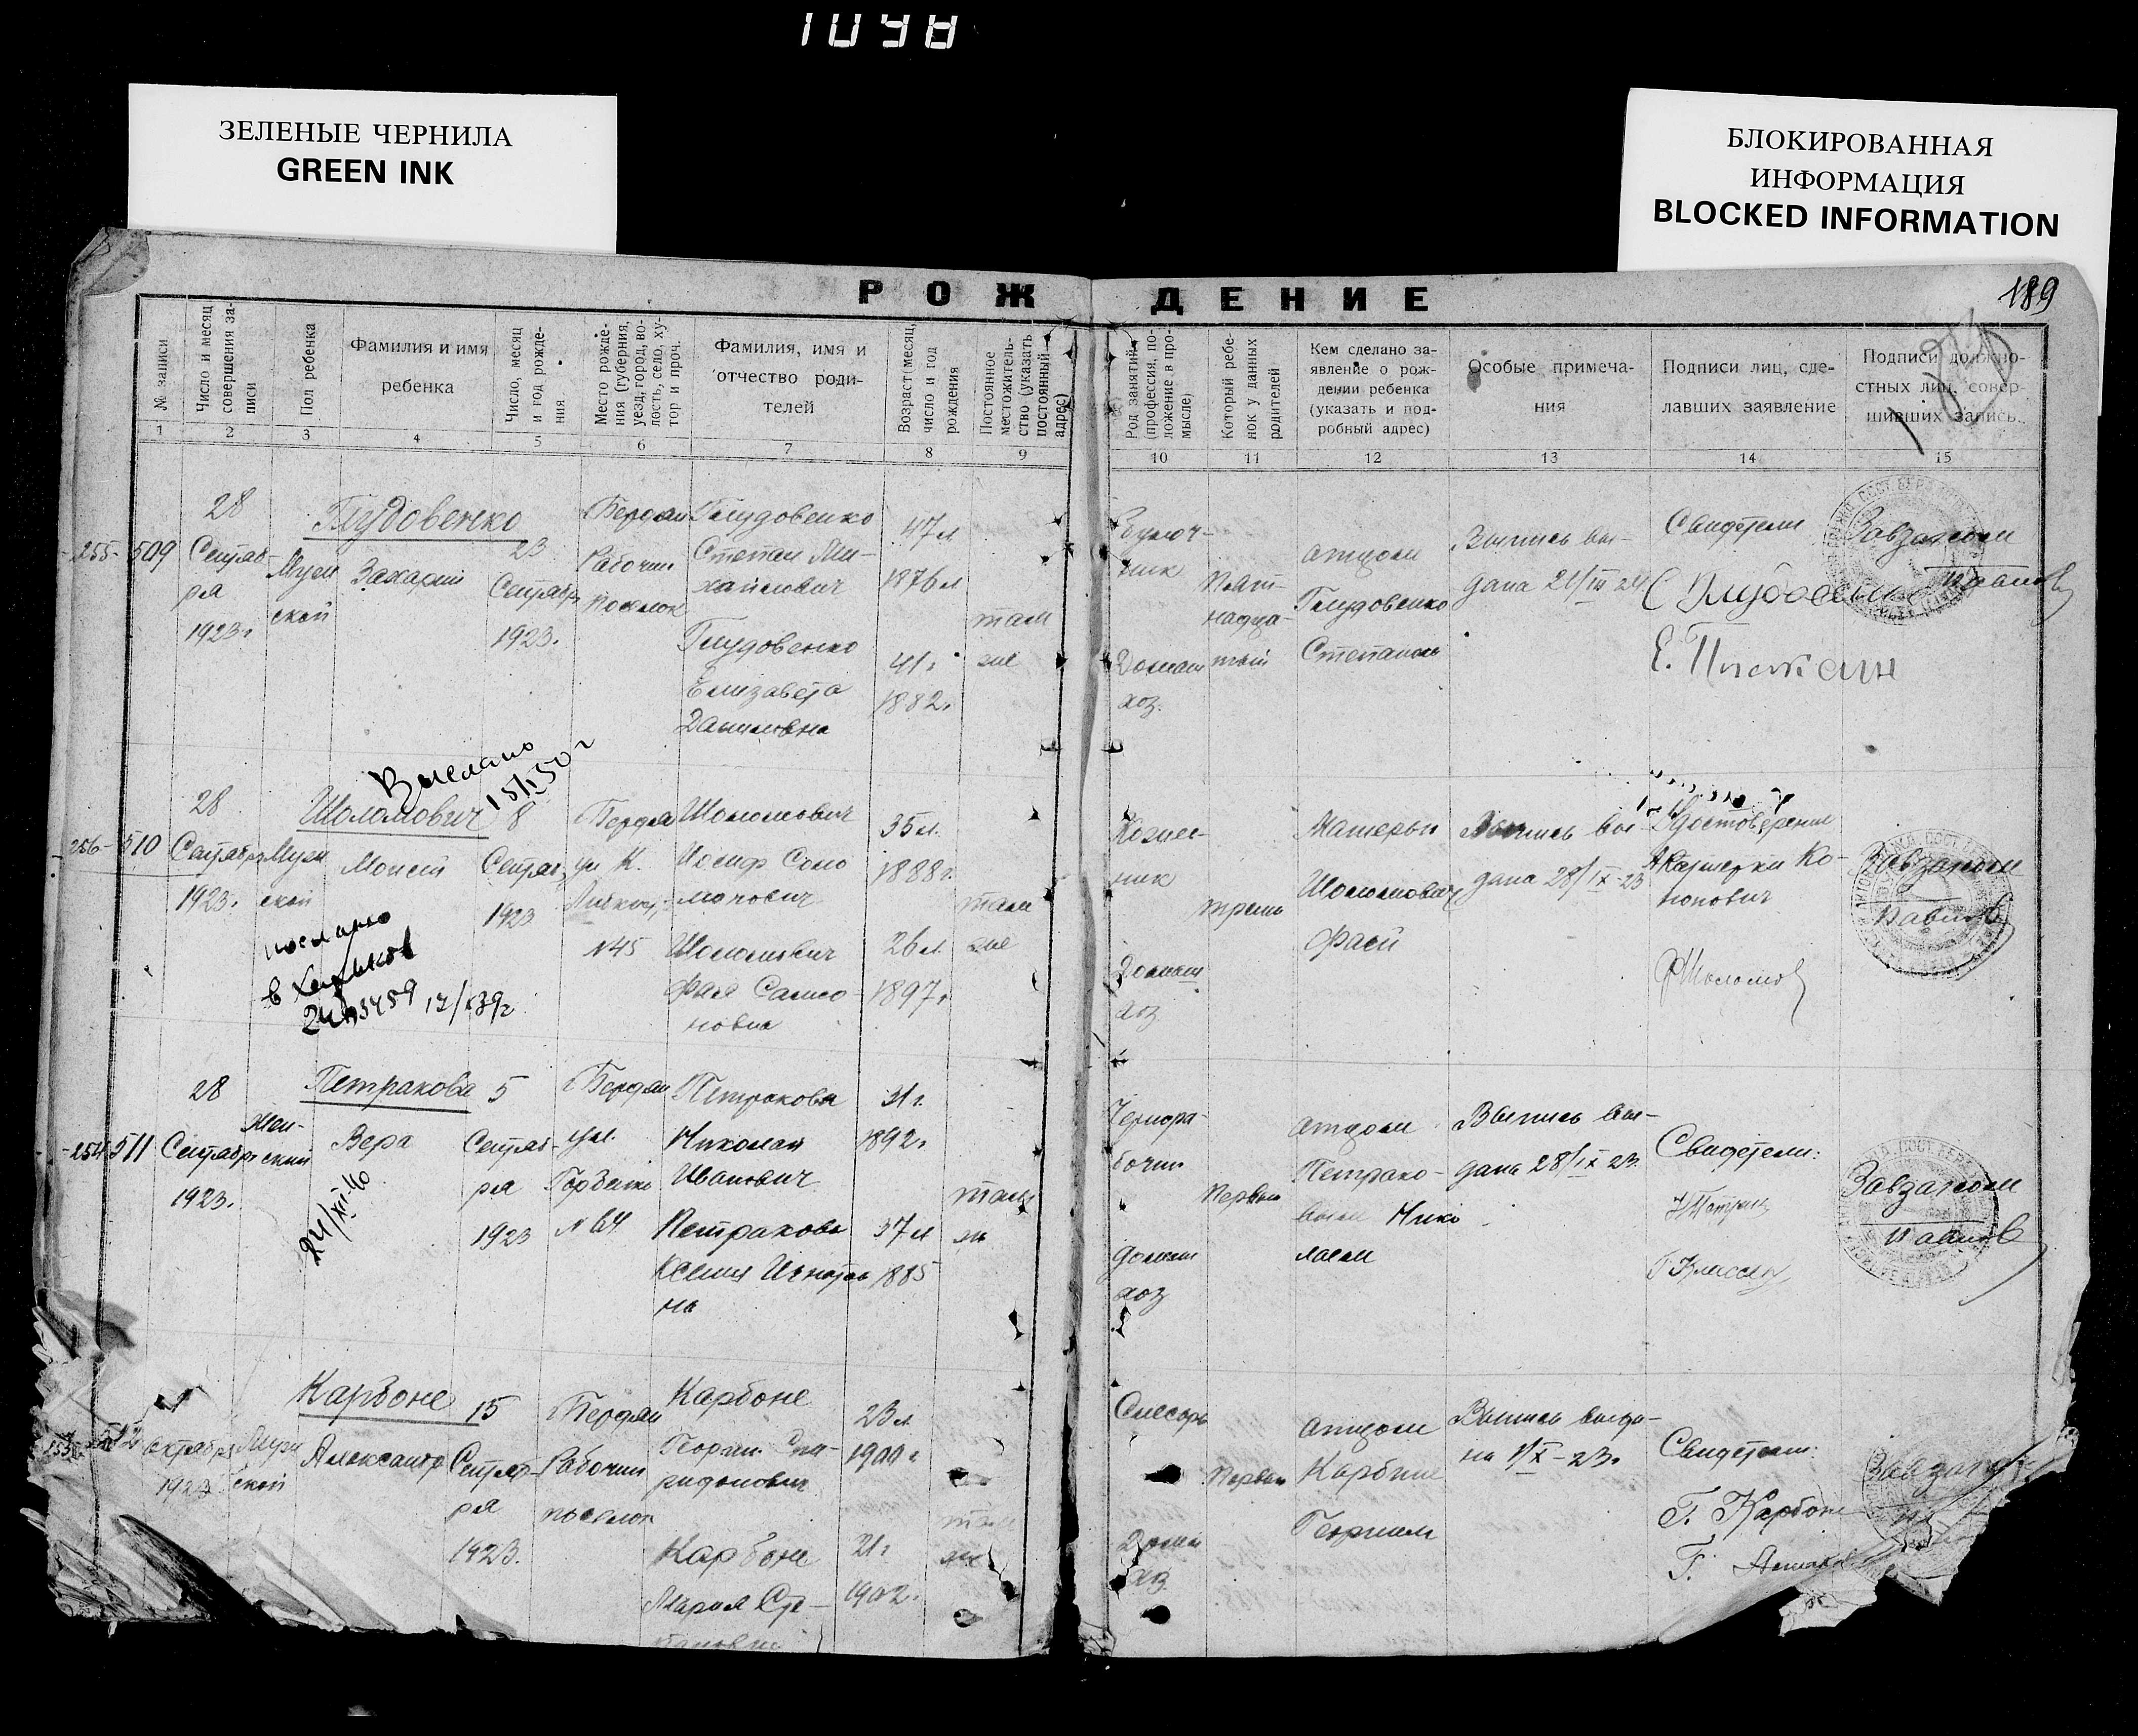 1098
ЗЕЛЕНЫЕ ЧЕРНИЛА
GREEN INK
БЛОКИРОВАННАЯ
ИНФОРМАЦИЯ
BLOCKED INFORMATION
РОЖДЕНИЕ
189
№ записи
Число и месяц
совершения за-
писи
Пол ребенка
Фамилия и имя
ребенка
Число, месяц
и год рожде-
ния
Место рожде-
ния (губерния,
уезд, город, во-
лость, село, ху-
тор и проч.
Фамилия, имя и
отчество роди-
телей
Возраст (месяц,
число и год
рождения
Постоянное
местожитель-
ство (указать
постоянный
адрес)
Род занятий
(профессия, по-
ложение в про-
мысле)
Который ребе-
нок у данных
родителей
Кем сделано за-
явление о рож-
дении ребенка
(указать и под-
робный адрес)
Особые примеча-
ния
Подписи лиц, сде-
лавших заявление
Подписи должно-
стных лиц, совер-
шивших запись.
1 2 3 4 5 6 7 8 9 10 11 12 13 14 15
255
509
28
Сентяб-
ря
1923г
Муж
ской
Глудовенко
Захарий
23
Сентябр
1923.
Бердян
Рабочий
поселок
Глудовенко
Степан Ми-
хайлович
Глудовенко
Елизавета
Даниловна
47л
1876л
41г
1882г
там
же
Домаш
хоз.
Пят-
надца-
тый
отцом
Глудовенко
Степаном
Выпись вы-
дана
Свидетели
Завзагсом
Павлов
Выслано
256
510
28
Сентябр
1923.
Муж
ской
Шоломович
Моисей
8
Сентяб
1923
Бердян
ул. К.
Либкн
№45
Шоломович
Иосиф Соло
монович
Шоломович
Фая Самсо-
новна
35л.
1888г.
26л.
1897г
там
же
послано
в Харьков
Домаш
хоз
третий
Матерью
Шоломович
Фаей
Выпись вы-
дана 28/IX-23
Удостоверение
Акушерки Ко-
нопович
Завзагсом
Павлов
254
511
28
Сентябр
1923.
Жен-
ский
Петракова
Вера
24/XII-46
5
Сентяб-
ря
1923
Бердян
ул.
Горбенко
№64
Петраков
Николай
Иванович
Петракова
Ксения Игнатов
на
31г.
1892г
37л
1885
там
же
Чернора-
бочий
домаш
хоз
Первый
отцом
Петрако-
вым Нико
лаем
Выпись вы-
дана 28/IX 23.
Свидетели:
Завзагсом
Павлов
512
1
октября
1923
Муж
ской
Карбоне
Александр
15
Сентяб-
ря
1923.
Бердян
Рабочий
поселок
Карбоне
Георгий Спи-
ридонович
Карбоне
Мария Сте-
пановна
23л
1900г
21г
1902г.
там
же
Слесарь
Домаш
хоз.
Первый
отцом
Карбоне
Георгием
Выпись выда-
на 1/X-23г
Свидетели:
Г. Карбоне
Завзагсом